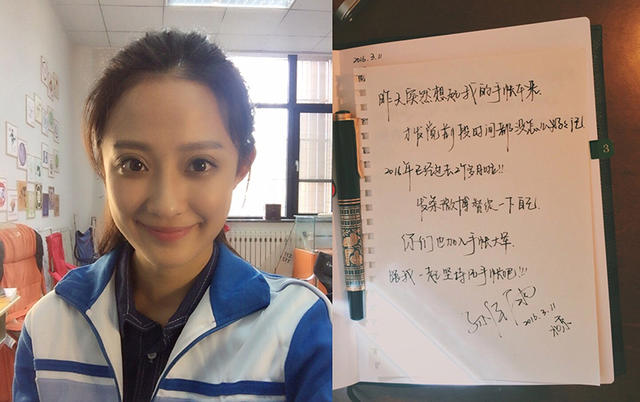 2016.3.11
昨天突然想起我的手帐本来
才发觉前段时间都没怎么好好记
2016年已经过去2个多月啦!!
发条微博督促一下自己
你们也加入手帐大军
跟我一起坚持用手帐吧!!!
2016.3.11
3